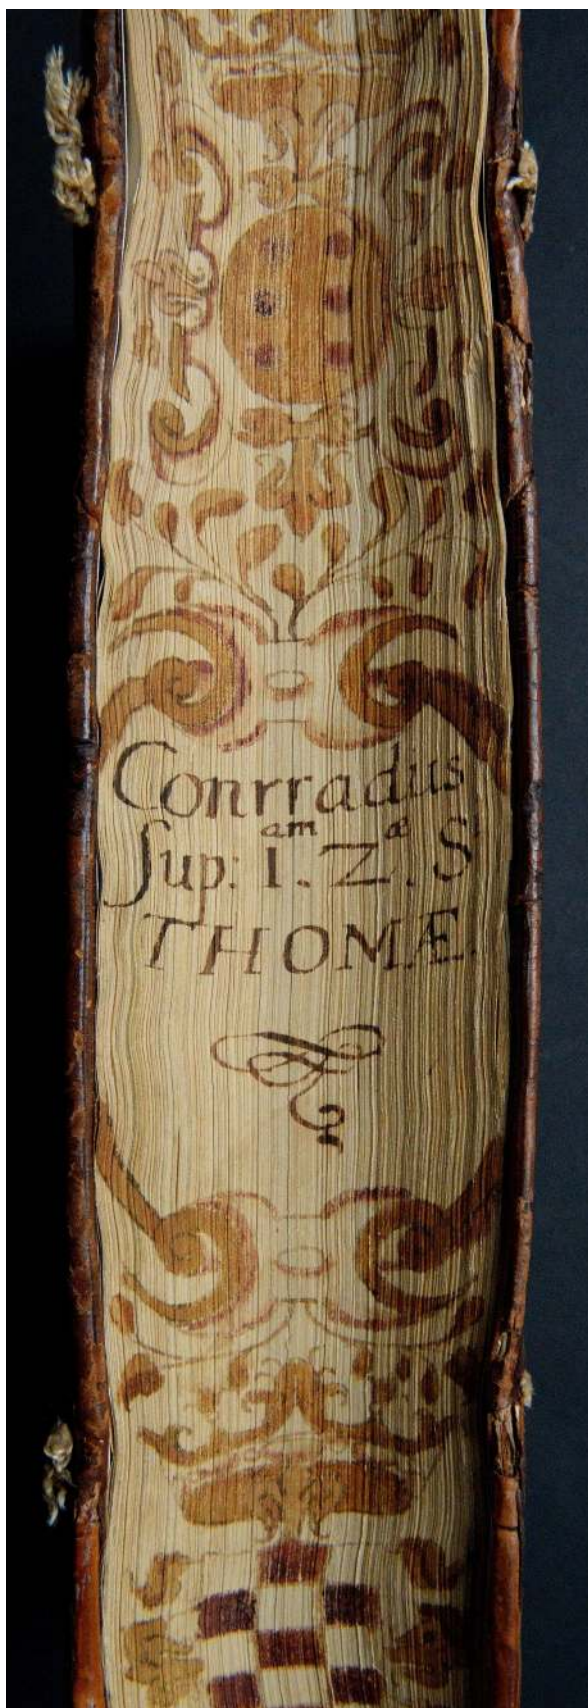 Conrradus
sup: I.am Z.æ S.
THOMÆ.